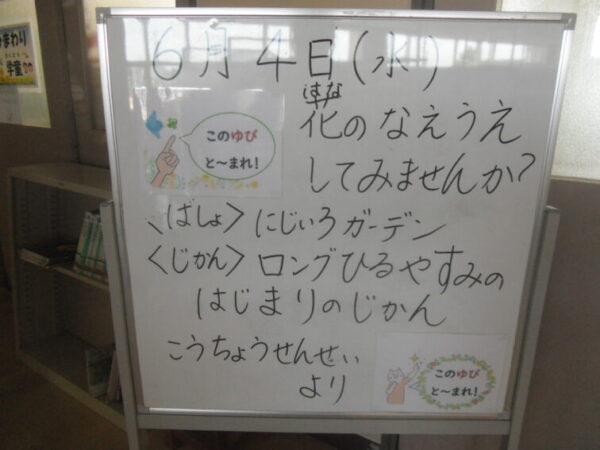 6月4日(水)
はな
花のなえうえ
してみませんか?
このゆび
と〜まれ!
<ばしょ>にじいろガーデン
<じかん>ロングひるやすみの
はじまりのじかん
こうちょうせんせい
より
このゆび
と〜まれ!
まわり
学童